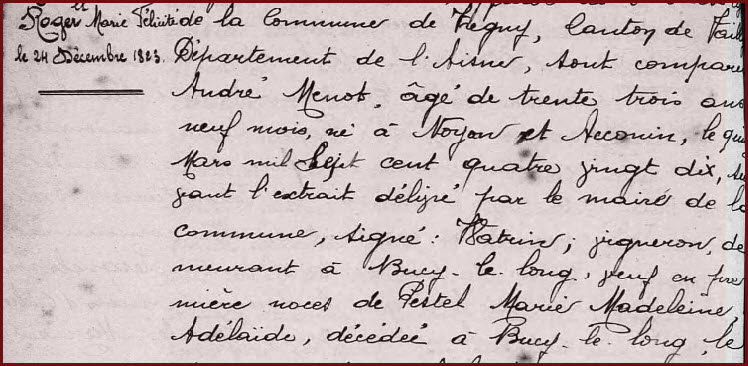 et
Roger Marie Félicité
le 24 Décembre 1823.
de la Commune de Vregny, Canton de Vail
Département de l'Aisne, sont compare
André Menot, âgé de trente trois ans
neuf mois, né à Noyon et Acconin, le qua
Mars mil Sept cent quatre vingt dix, su
vant l'extrait délivré par le maire de la
commune, signé : Watrin; vigneron, de
meurant à Bucy-le-long, veuf en pre
mière noces de Pestel Marie Madeleine,
Adélaïde, décédée à Bucy-le-long, le